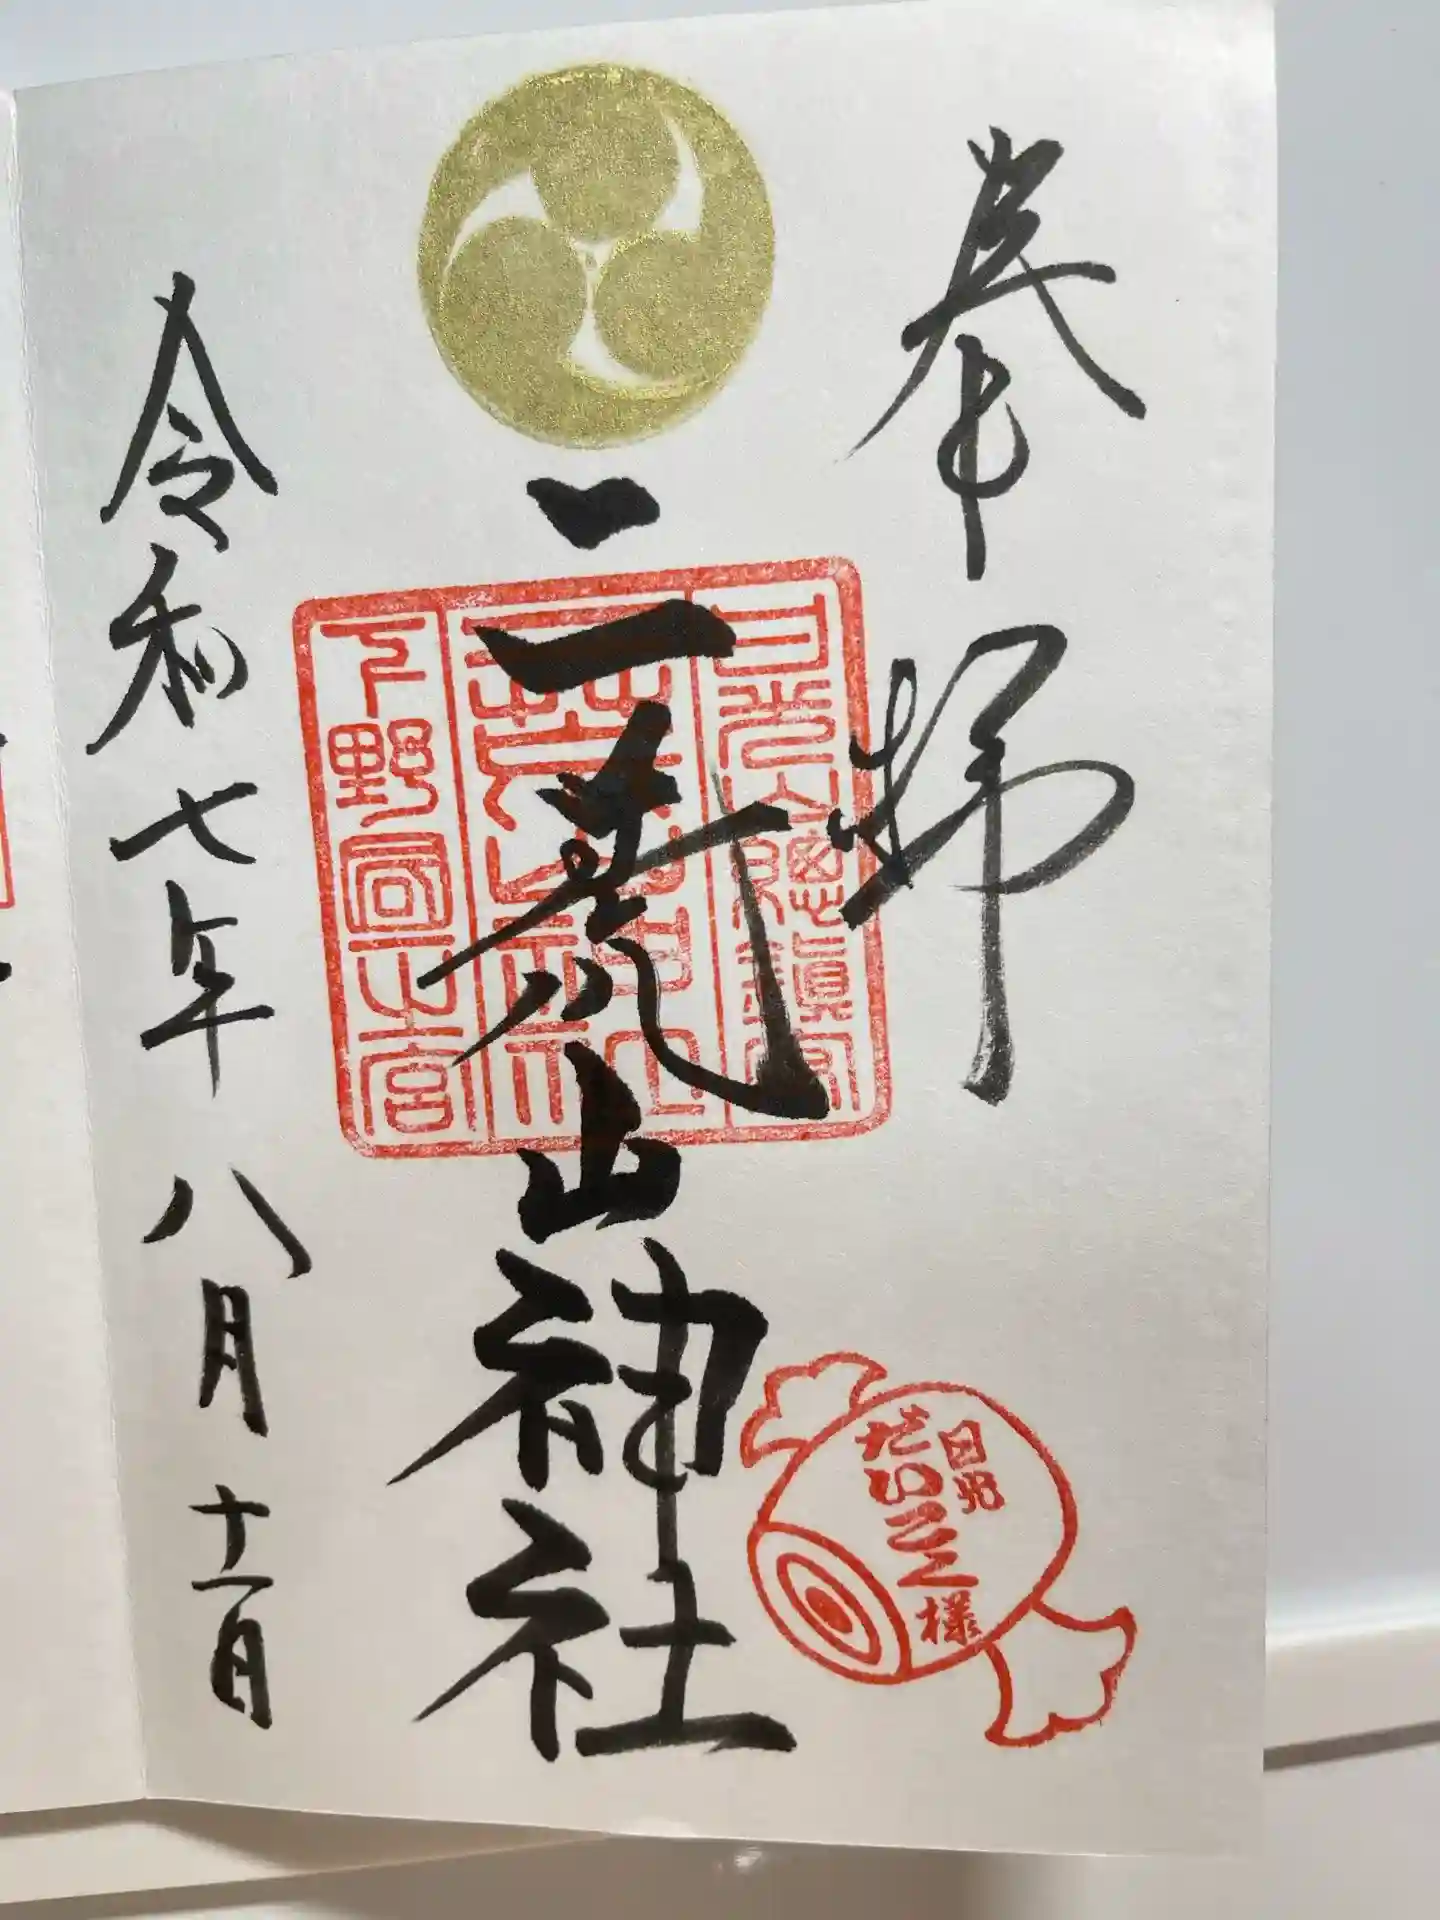 奉拝
日光山總鎮守
二荒山神社
下野國一之宮
二荒山神社
日光
だいこく様
令和七年八月十一日